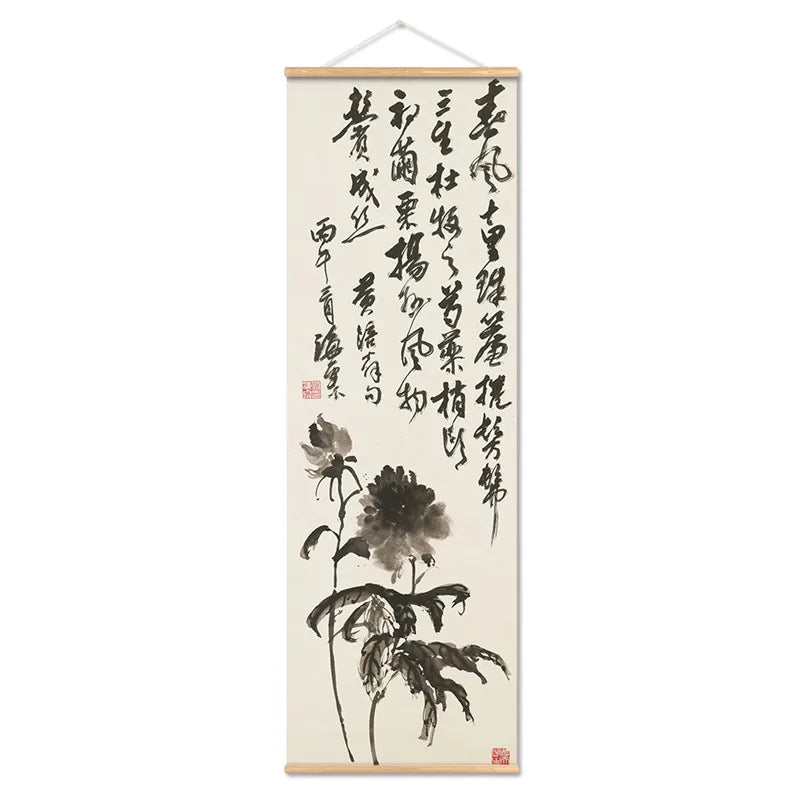 春風十里珠簾捲髣髴
三生杜牧之芍藥梢頭
初繭栗揚州風物
鬢成絲
黃涪翁句
丙午 月海粟